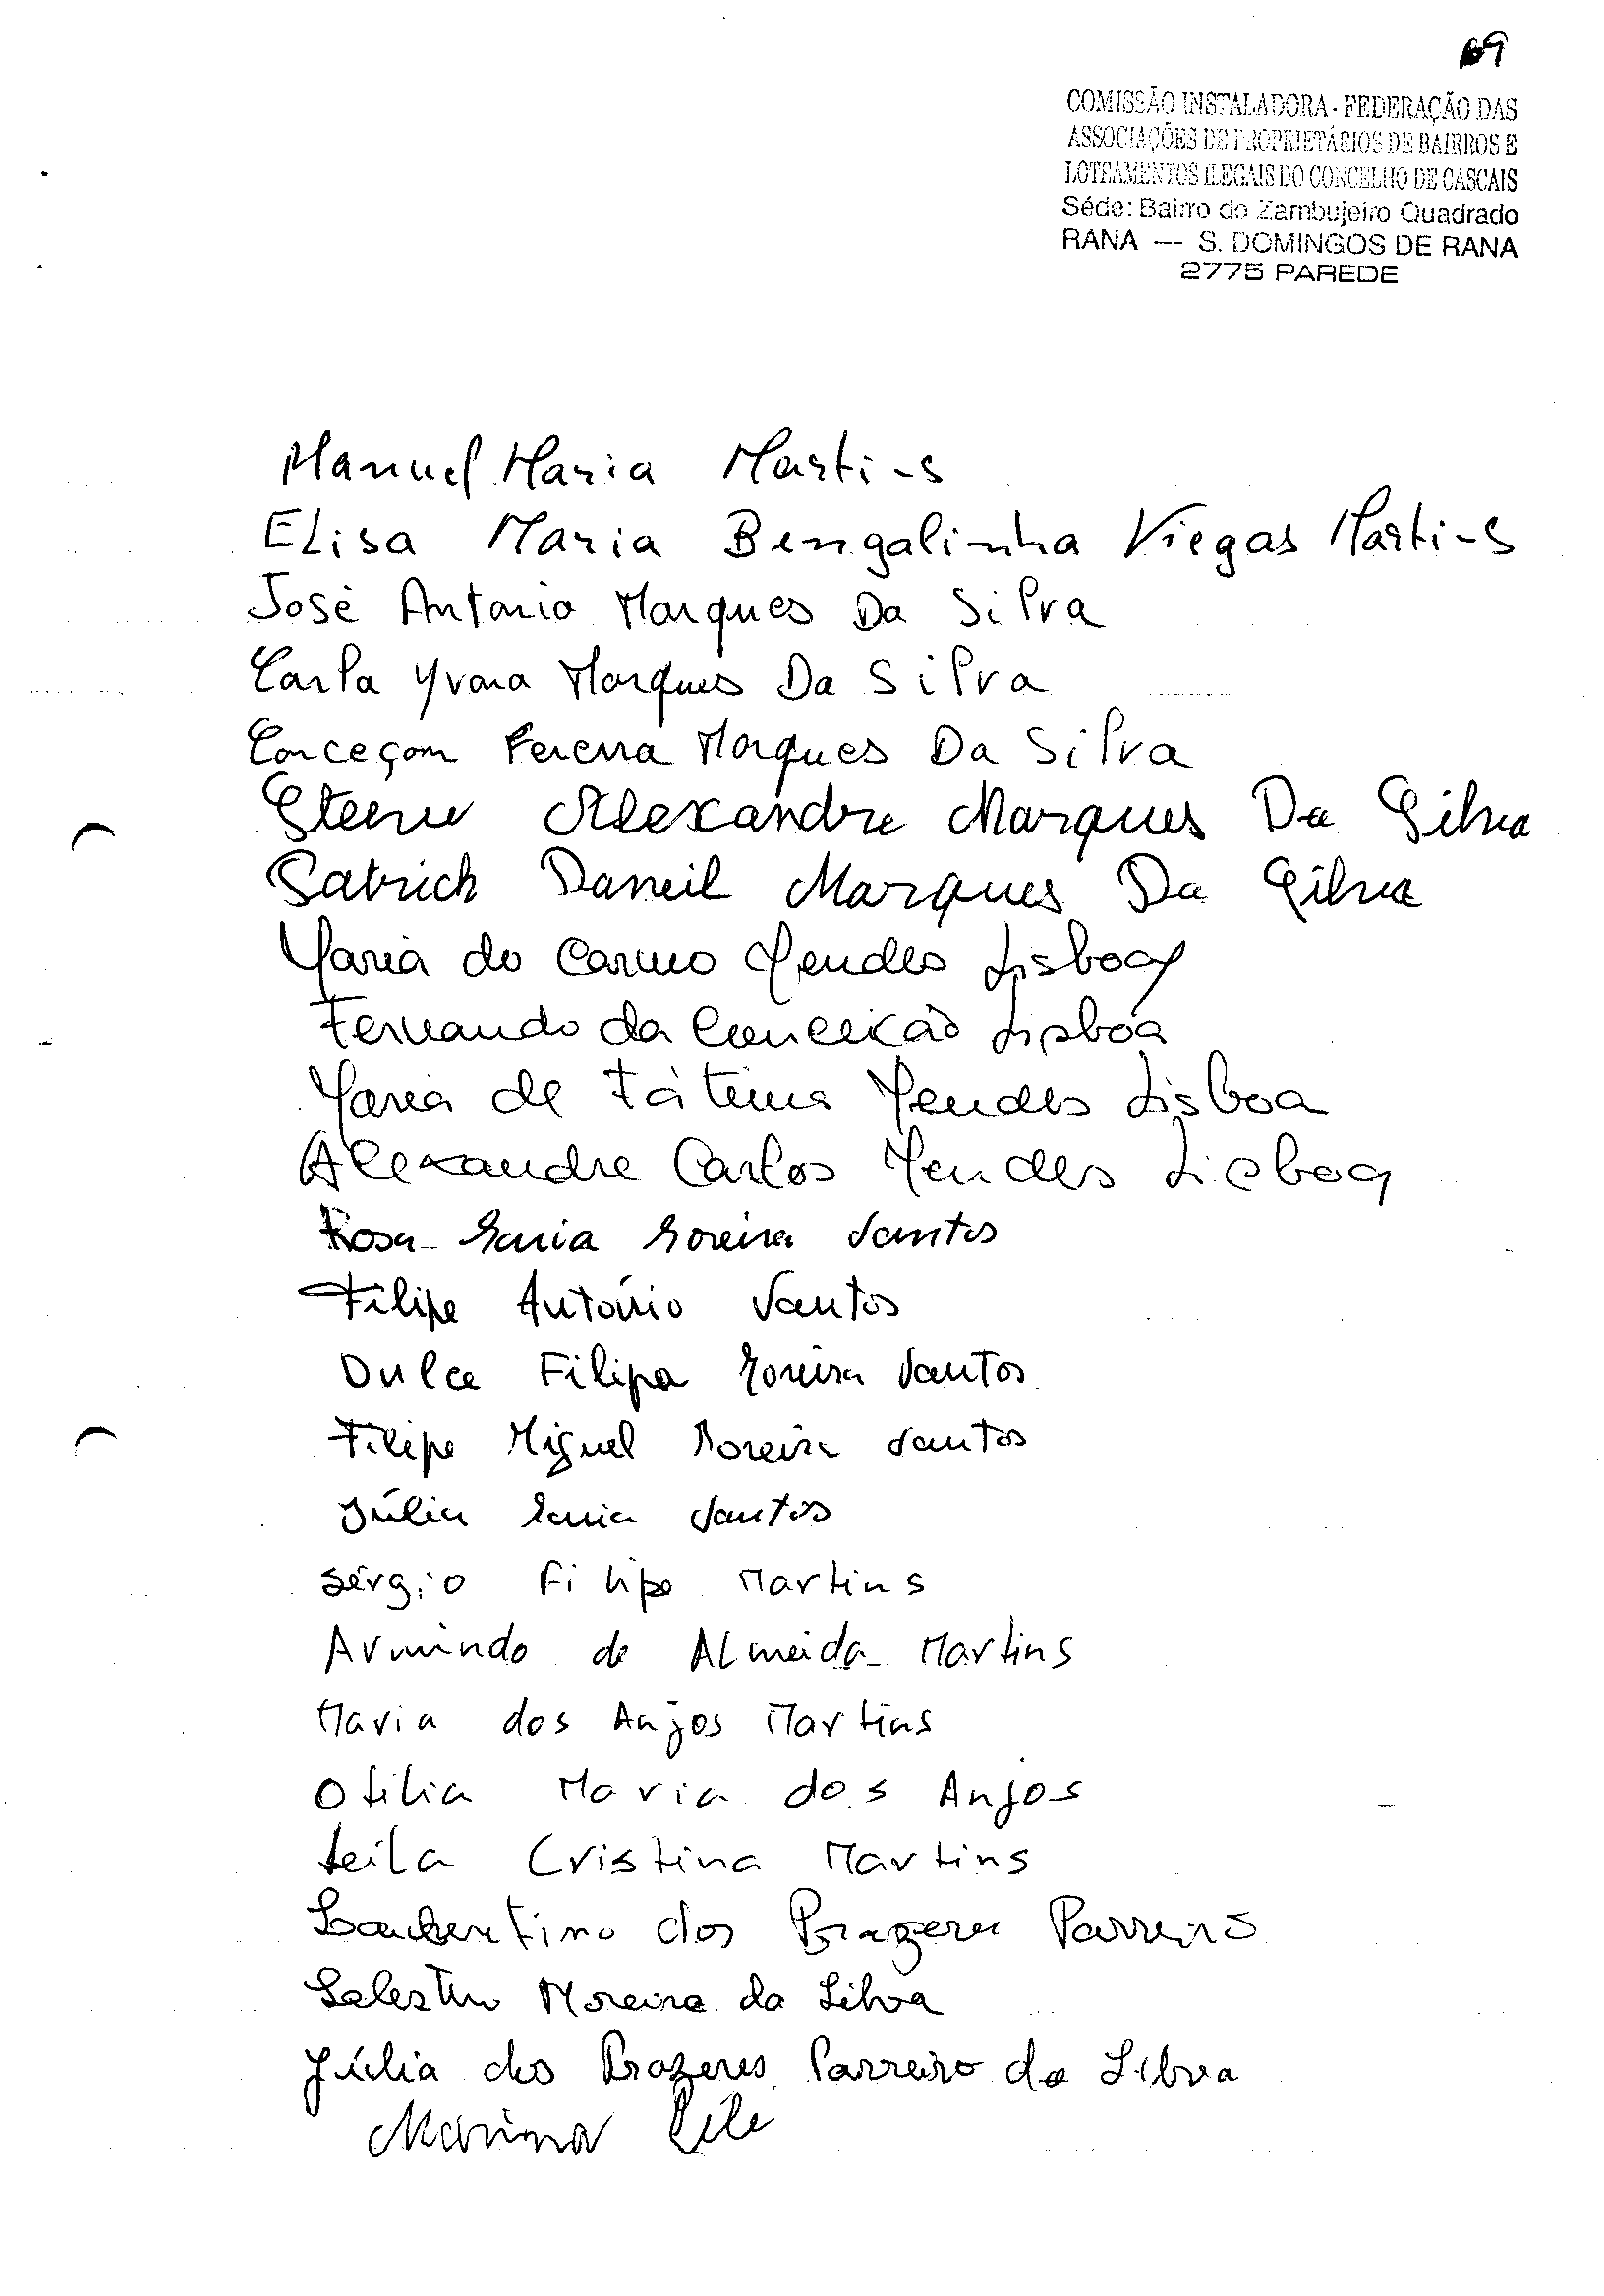 69
COMISSÃO INSTALADORA - FEDERAÇÃO DAS
ASSOCIAÇÕES DE PROPRIETÁRIOS DE BAIRROS E
LOTEAMENTOS ILEGAIS DO CONCELHO DE CASCAIS
Séde: Bairro do Zambujeiro Quadrado
RANA — S. DOMINGOS DE RANA
2775 PAREDE
Manuel Maria Martins
Elisa Maria Bengalinha Viegas Martins
José Antonio Marques Da Silva
Carla Yvona Marques Da Silva
Conceçom Pereira Marques Da Silva
Alexandre Marques Da Silva
Patrick Daneil Marques Da Silva
Maria do Carmo Mendes Lisboa
Fernando da Conceicão Lisboa
Maria de Fátima Mendes Lisboa
Alexandre Carlos Mendes Lisboa
Rosa Maria Moreira Santos
Filipe António Santos
Dulce Filipa Moreira Santos
Filipe Miguel Moreira Santos
Júlia Maria Santos
Sérgio Filipe Martins
Armindo de Almeida Martins
Maria dos Anjos Martins
Otilia Maria dos Anjos
Leila Cristina Martins
dos Prazeres Parreiro
Moreira da Silva
Júlia dos Prazeres Parreiro da Silva